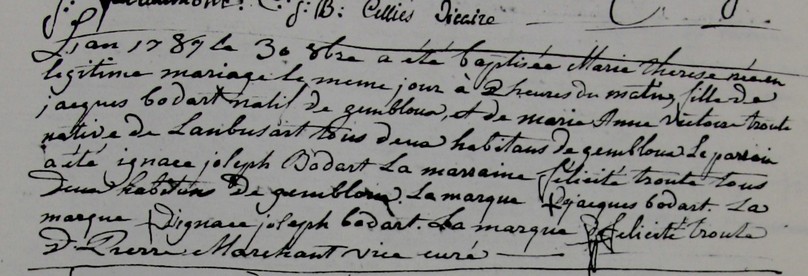 J: B: Cellier Vicaire
L'an 1787 le 30 8bre a été baptisée Marie therese née en
legitime mariage le meme jour à 2 heures du matin, fille de
jacques bodart natif de gembloux, et de marie Anne victoire troute
native de Lanbusart tous deux habitans de gembloux Le parain
a été ignace joseph Bodart La marraine félicité troute tous
deux habitans de gembloux. La marque + jacques bodart La
marque + d'ignace joseph bodart. La marque + felicité troute
D Pierre Marchant vice curé